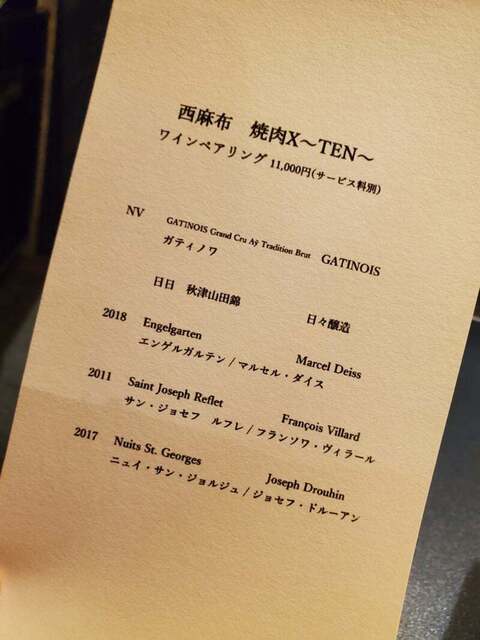 西麻布　焼肉X～TEN～
ワインペアリング 11,000円(サービス料別)
NV GATINOIS Grand Cru Aÿ Tradition Brut GATINOIS
ガティノワ
日日　秋津山田錦 日々醸造
2018 Engelgarten Marcel Deiss
エンゲルガルテン / マルセル・ダイス
2011 Saint Joseph Reflet François Villard
サン・ジョセフ　ルフレ / フランソワ・ヴィラール
2017 Nuits St. Georges Joseph Drouhin
ニュイ・サン・ジョルジュ / ジョセフ・ドルーアン